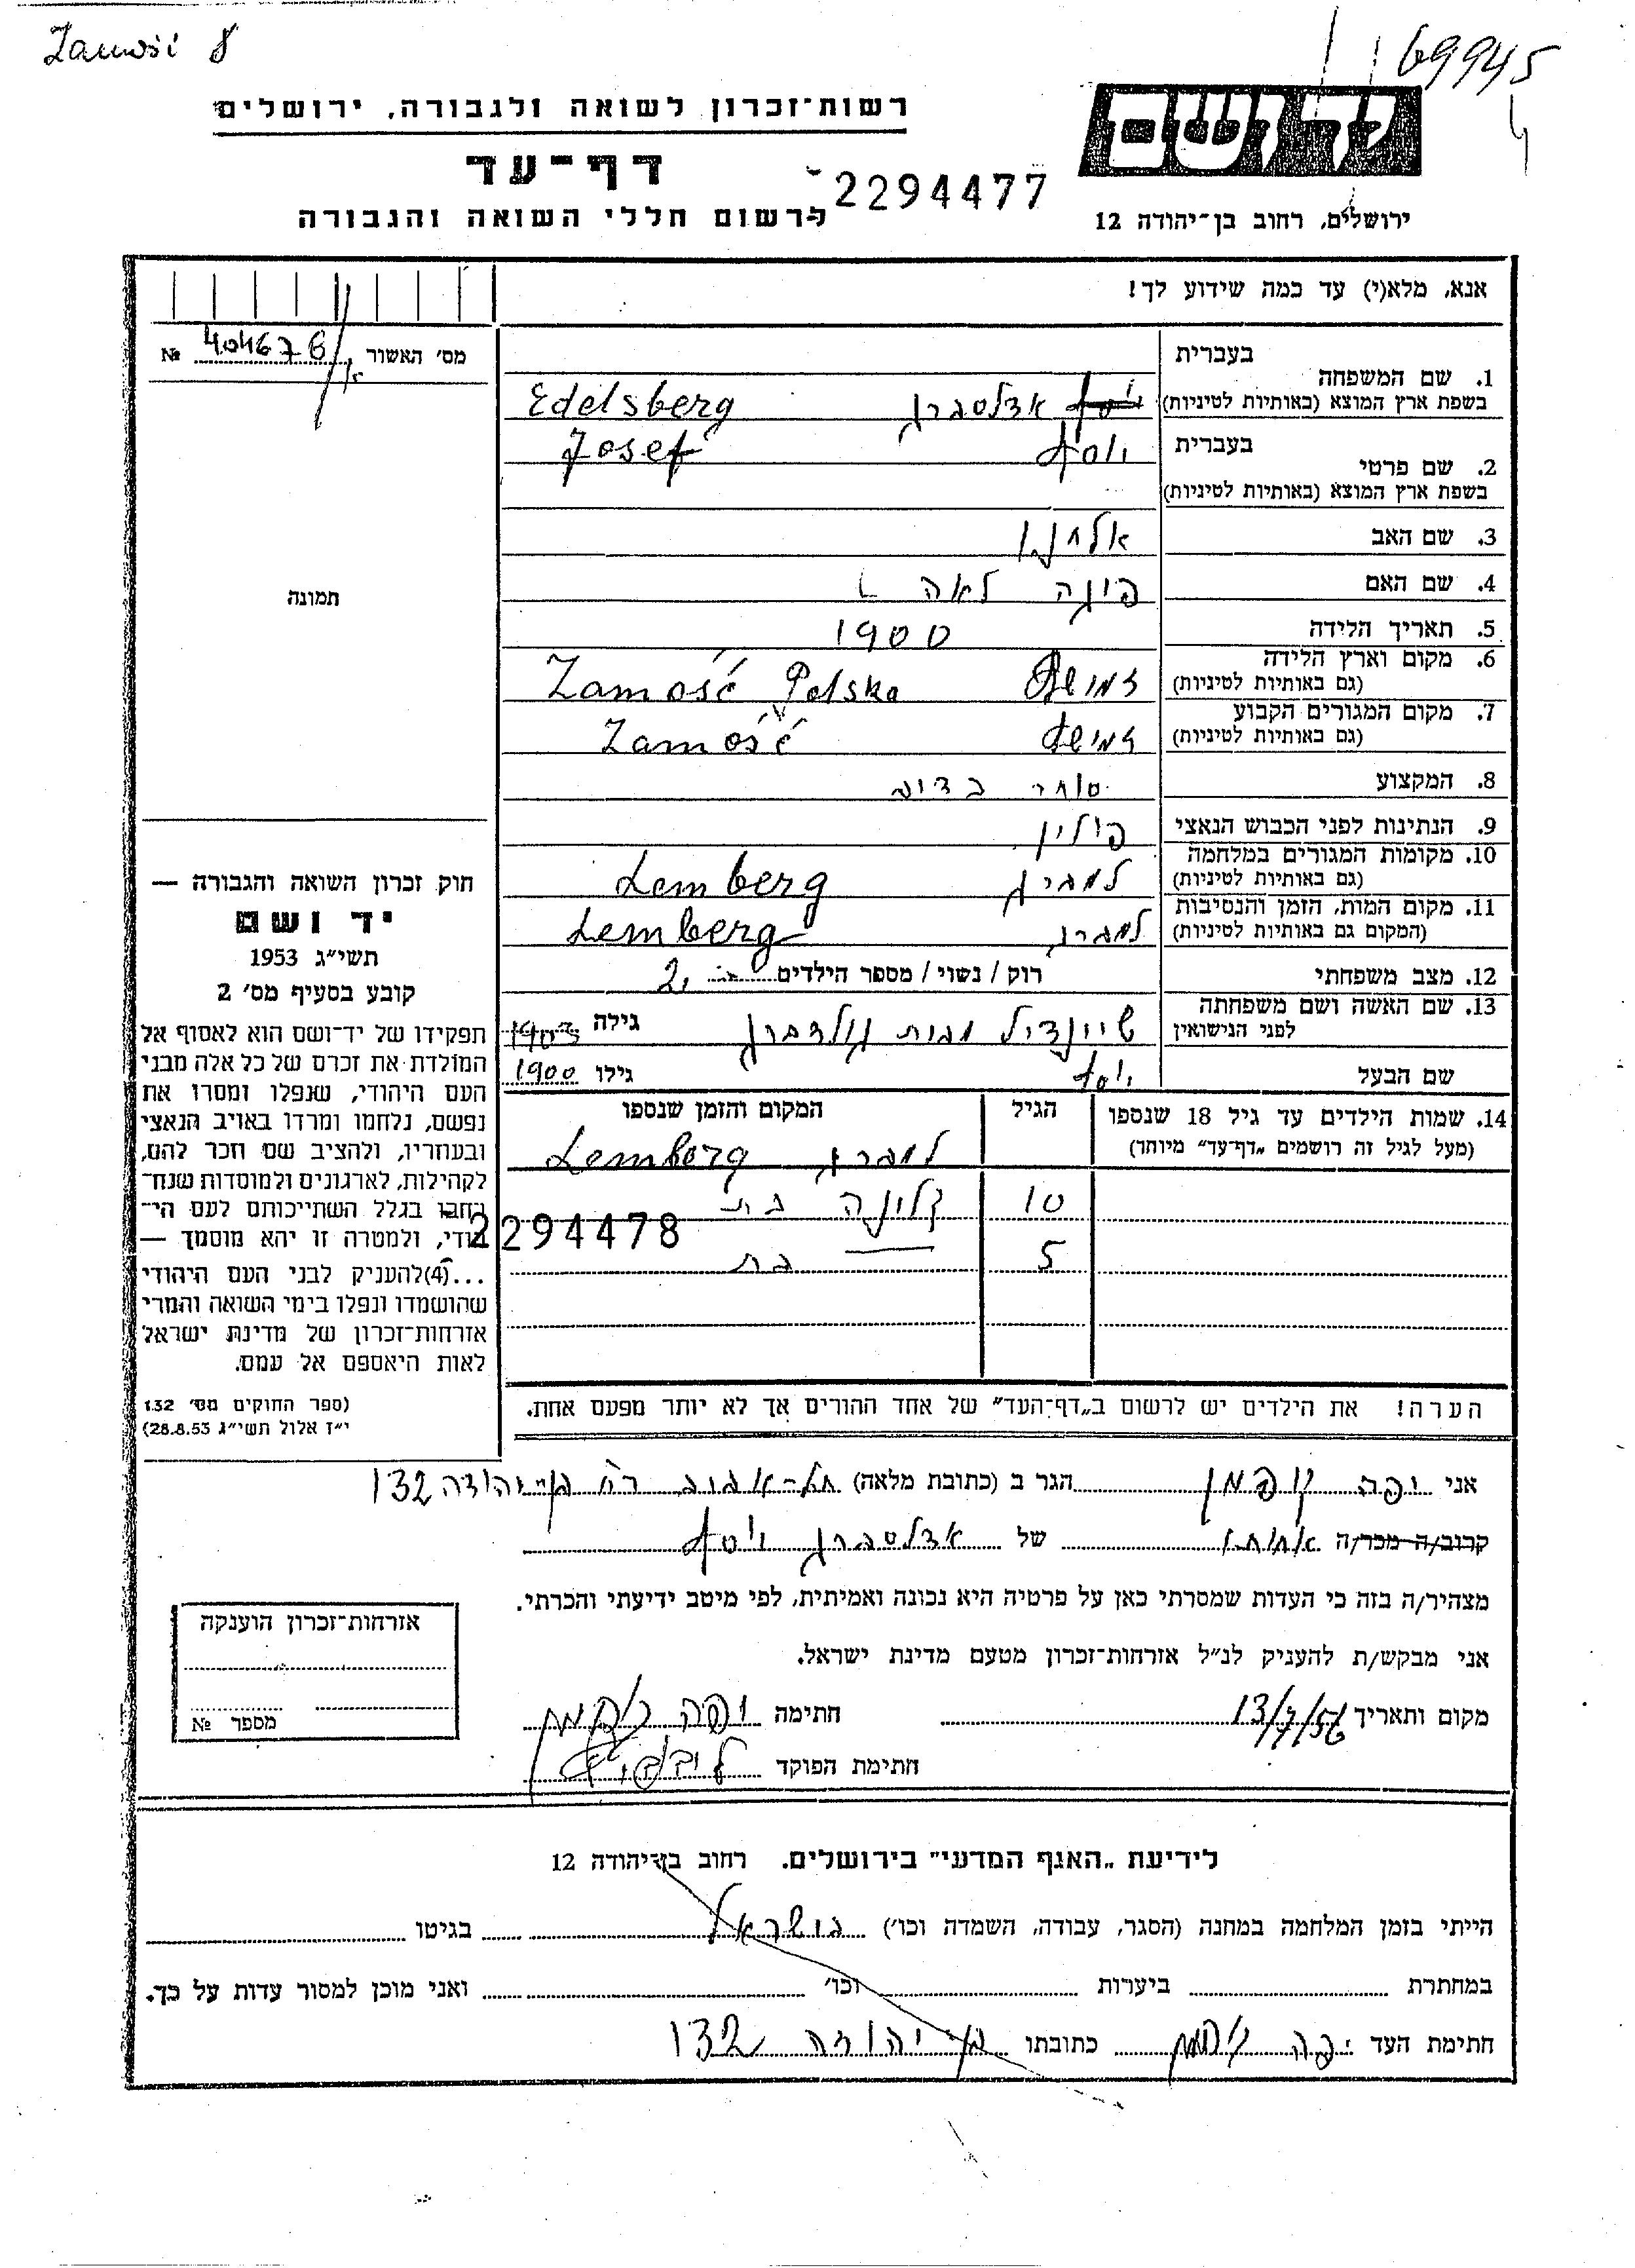 Zamość 8
69945
רשות־זכרון לשואה ולגבורה, ירושלים
יד ושם
דף־עד
2294477
לרשום חללי השואה והגבורה
ירושלים, רחוב בן־יהודה 12
אנא, מלא(י) עד כמה שידוע לך!
מס' האשור 404676 №
תמונה
1. שם המשפחה בעברית
בשפת ארץ המוצא (באותיות לטיניות) יוסף אדלסברג Edelsberg
2. שם פרטי בעברית יוסף Josef
בשפת ארץ המוצא (באותיות לטיניות)
3. שם האב אלחנן
4. שם האם פיגה לאה
5. תאריך הלידה 1900
6. מקום וארץ הלידה
(גם באותיות לטיניות) זמושץ Zamość Polska
7. מקום המגורים הקבוע
(גם באותיות לטיניות) זמושץ Zamość
8. המקצוע סוחר בדים
9. הנתינות לפני הכבוש הנאצי פולין
10. מקומות המגורים במלחמה
(גם באותיות לטיניות) למברג Lemberg
11. מקום המות, הזמן והנסיבות
(המקום גם באותיות לטיניות) למברג Lemberg
12. מצב משפחתי רוק / נשוי / מספר הילדים 2
13. שם האשה ושם משפחתה
לפני הנישואין שיינדיל מבית גולדברג גילה 1903
שם הבעל יוסף גילו 1900
14. שמות הילדים עד גיל 18 שנספו הגיל המקום והזמן שנספו
(מעל לגיל זה רושמים „דף־עד” מיוחד) למברג Lemberg
10 בת
2294478
5 בת
הערה! את הילדים יש לרשום ב„דף־העד” של אחד ההורים אך לא יותר מפעם אחת.
חוק זכרון השואה והגבורה —
יד ושם
תשי״ג 1953
קובע בסעיף מס' 2
תפקידו של יד־ושם הוא לאסוף אל
המולדת את זכרם של כל אלה מבני
העם היהודי, שנפלו ומסרו את
נפשם, נלחמו ומרדו באויב הנאצי
ובעוזריו, ולהציב שם וזכר להם,
לקהילות, לארגונים ולמוסדות שנח־
רבו בגלל השתייכותם לעם הי־
הודי, ולמטרה זו יהא מוסמך —
...(4)להעניק לבני העם היהודי
שהושמדו ונפלו בימי השואה והמרי
אזרחות־זכרון של מדינת ישראל
לאות היאספם אל עמם.
(ספר החוקים מס' 132
י״ז אלול תשי״ג 28.8.53)
אני יפה קופמן הגר ב (כתובת מלאה) תל-אביב רח' בן-יהודה 132
קרוב/ה מכר/ה אחותו של אדלסברג יוסף
מצהיר/ה בזה כי העדות שמסרתי כאן על פרטיה היא נכונה ואמיתית, לפי מיטב ידיעתי והכרתי.
אני מבקש/ת להעניק לנ״ל אזרחות־זכרון מטעם מדינת ישראל.
מקום ותאריך 13/7/56 חתימה יפה קופמן
חתימת הפוקד
אזרחות־זכרון הוענקה
מספר №
לידיעת „האגף המדעי” בירושלים. רחוב בן־יהודה 12
הייתי בזמן המלחמה במחנה (הסגר, עבודה, השמדה וכו') בישראל בגיטו
במחתרת ביערות וכו' ואני מוכן למסור עדות על כך.
חתימת העד יפה קופמן כתובתו בן יהודה 132